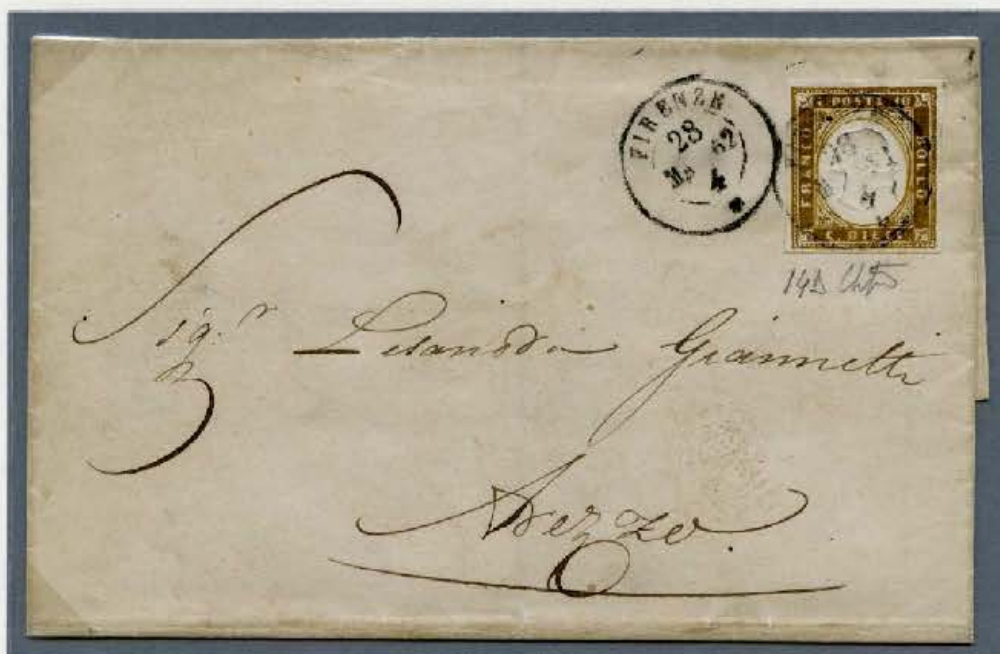 FIRENZE
28
Mº 62
4
C. POSTE IO
FRANCO BOLLO
C. DIECI
14D
Sig.r Lisandro Giannetti
Arezzo.